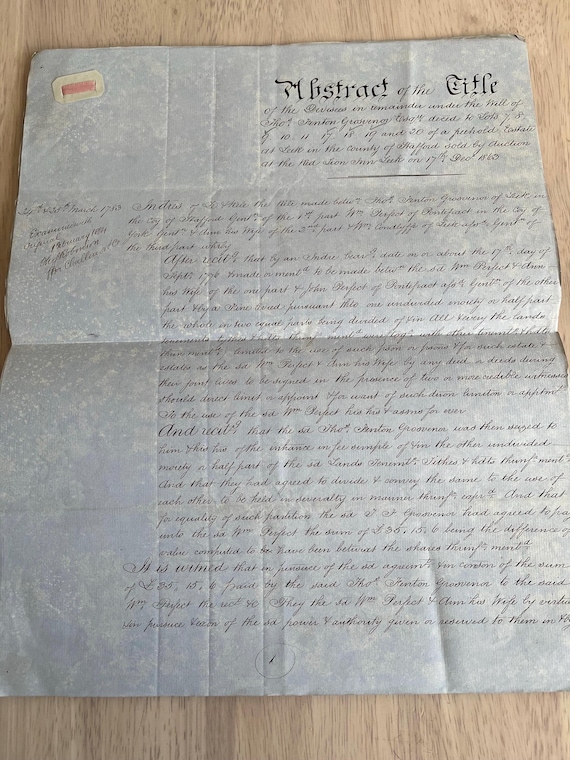 Abstract of the Title
of the Devisees in remainder under the Will of
Thos. Fenton Grosvenor Esqre. deced to Lots 7, 8
9, 10, 11 17, 18 19 and 20 of a freehold Estate
at Leek in the County of Stafford sold by Auction
at the Red Lion Inn Leek on 17th Decr. 1863
24th & 25th March 1783
Indres of Lease & Rele the rele made betwn. Thos. Fenton Grosvenor of Leek in
the Coy of Stafford Gentn. of the 1st part Wm Perfect of Pontefract in the Coy of
York Gentn. & Ann his Wife of the 2nd. part Wm Condliffe of Leek afsd. Gentn. of
the third part
After recitg. that by an Indre beare. date on or about the 17th. day of
Septr. 1776 & made or mentd. to be made betwn the sd Wm Perfect & Ann
his Wife of the one part & John Perfect of Pontefract afsd. Gentn. of the other
part & by a Fine levied pursuant thto. one undivided moiety or half part
the whole in two equal parts being divided of & in All & every the Lands
limited to the use of such person or persons & for such estate &
estates as the sd Wm Perfect & Ann his Wife by any deed or deeds during
their joint lives to be signed in the presence of two or more credible witnesses
should direct limit or appoint & for want of such direon limiton or apptmt.
To the use of the sd Wm Perfect his hrs & assns for ever
And recitg. that the sd Thos. Fenton Grosvenor was then seized to
him & his hrs of the inhance in fee simple of & in the other undivided
moiety or half part of the sd Lands Tenemts. Tithes & hdts
And that they had agreed to divide & convey the same to the use of
each other to be held in severalty in manner And that
for equality of such partition the sd T. F. Grosvenor had agreed to pay
unto the sd Wm Perfect the sum of £35. 15. 6 being the difference of
value computed to be have been betwn the shares
It is witned that in pursuce of the sd agreemt. & in conson of the sum
of £35. 15. 6 paid by the said Thos. Fenton Grosvenor to the said
Wm. Perfect the rect. &c They the sd Wm Perfect & Ann his Wife by virtue
& in pursuce & exon of the sd power & authority given or reserved to them in & by
1